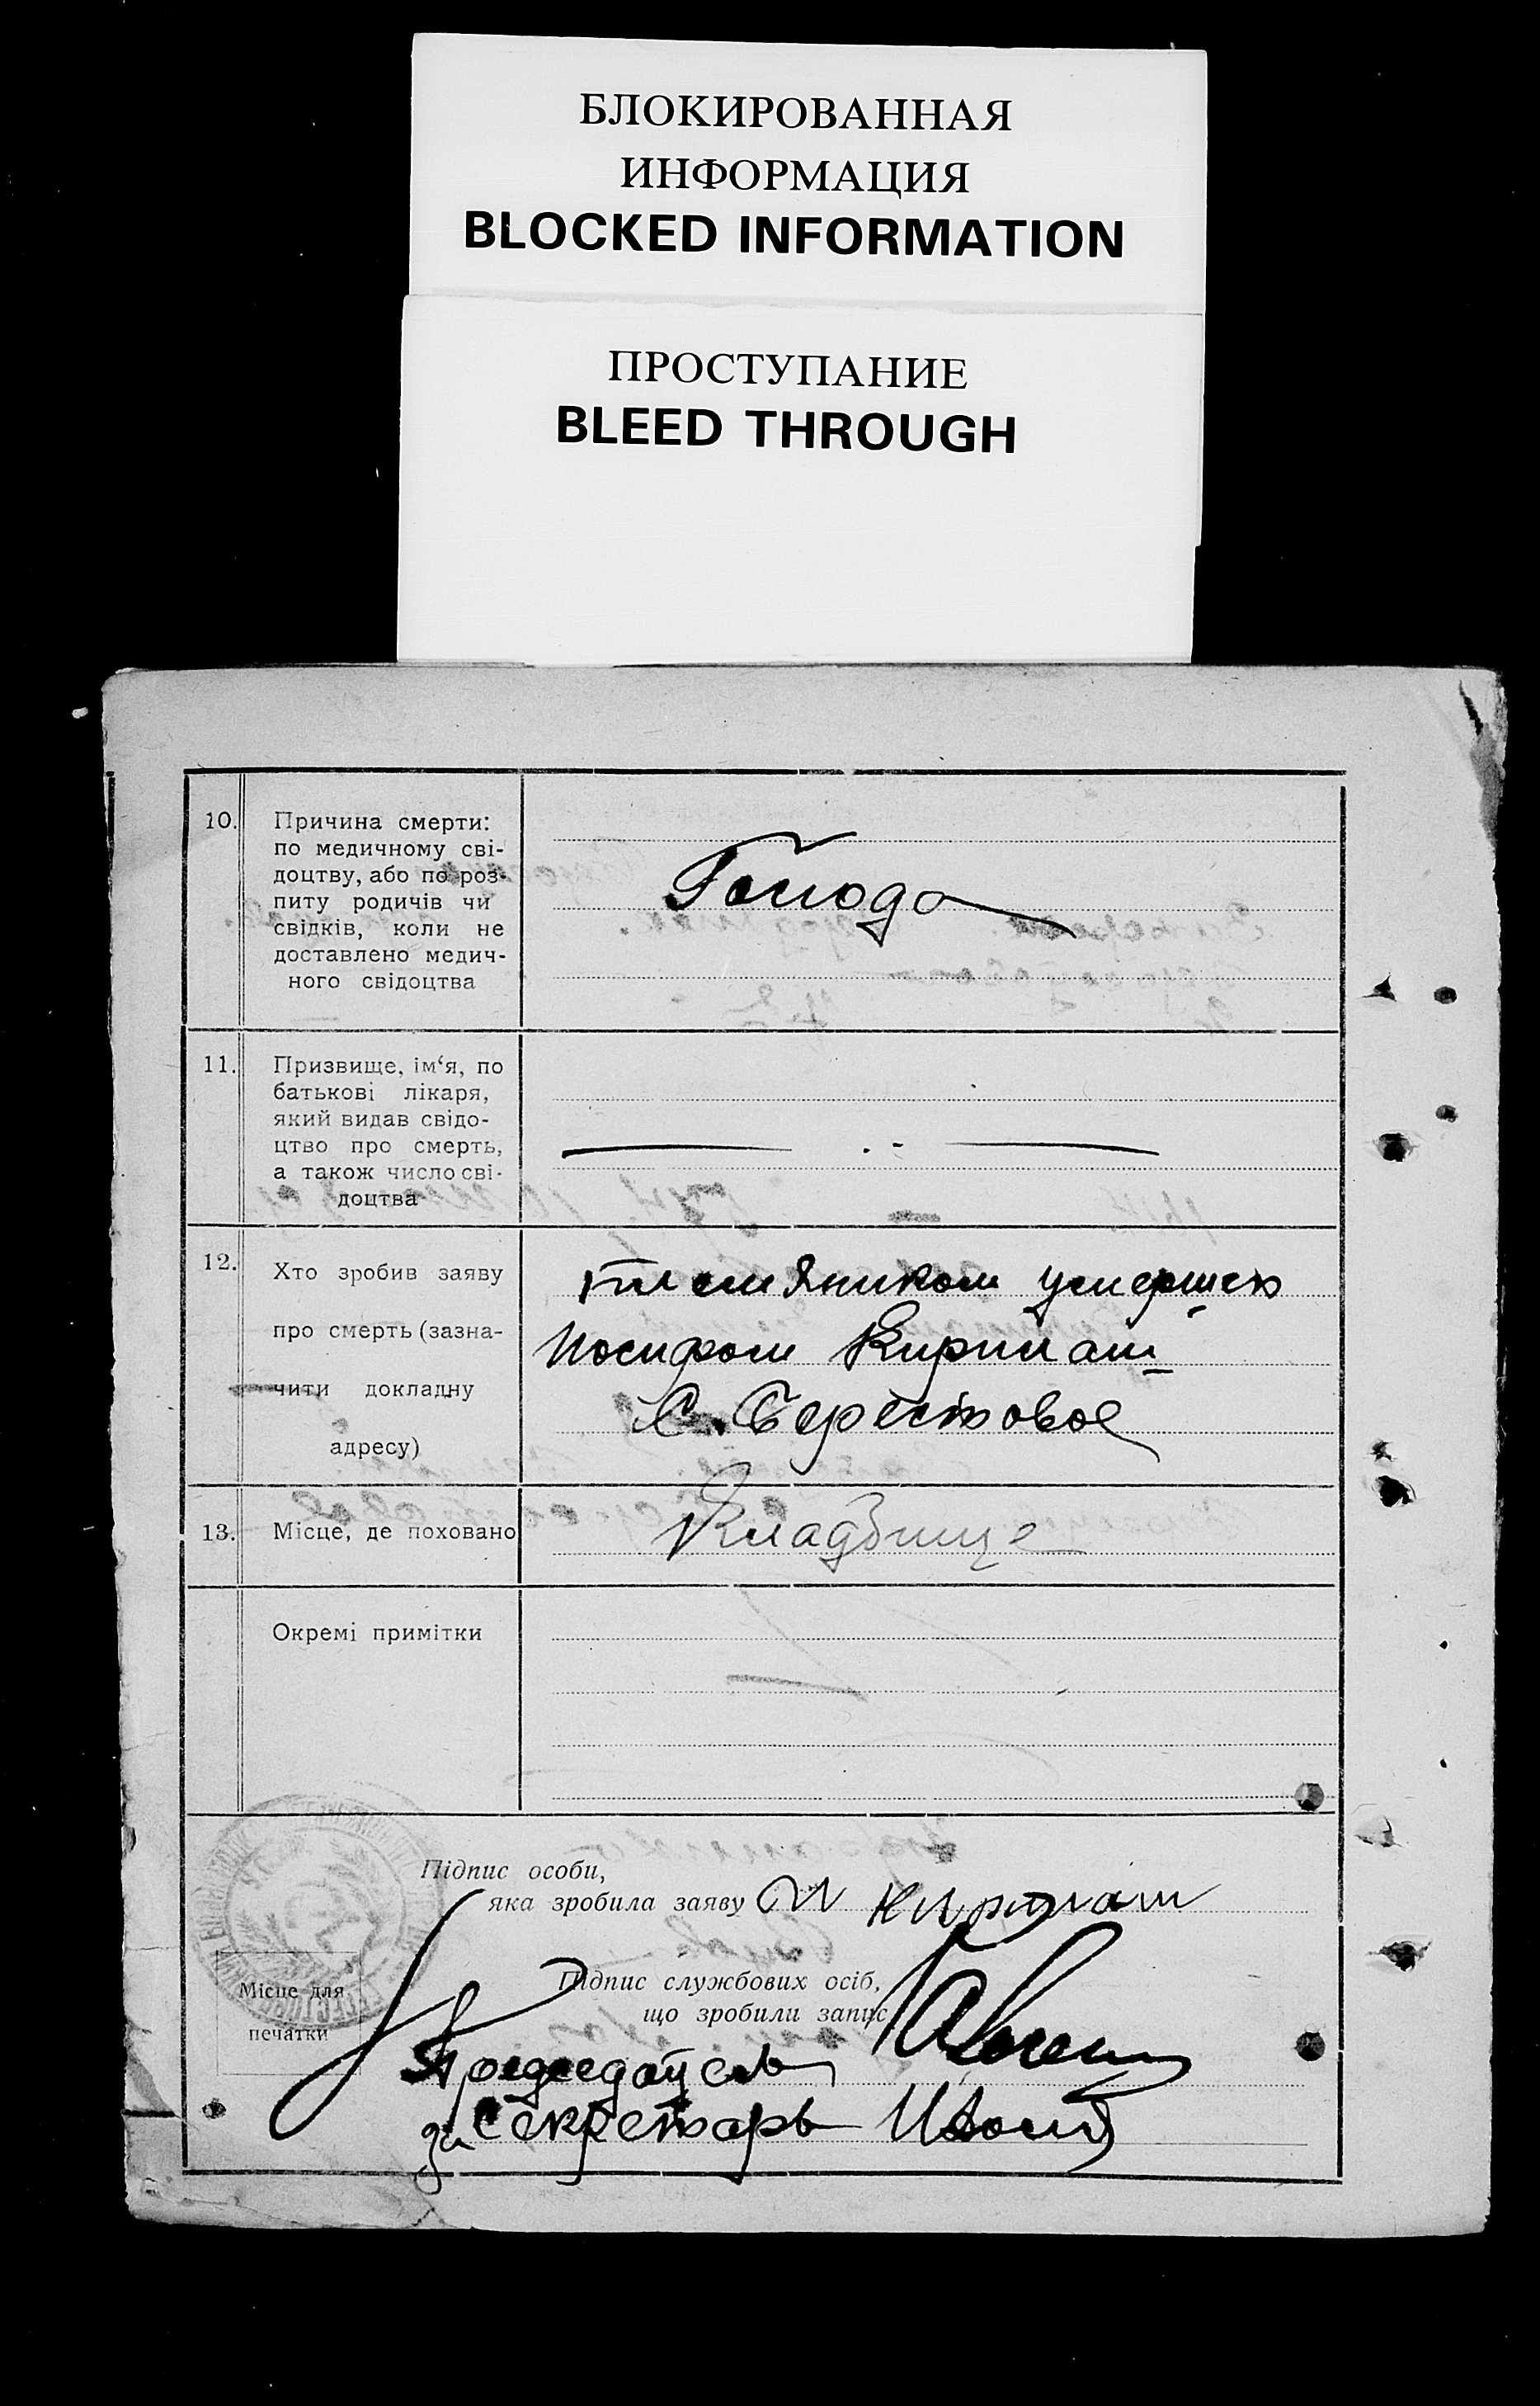 БЛОКИРОВАННАЯ
ИНФОРМАЦИЯ
BLOCKED INFORMATION
ПРОСТУПАНИЕ
BLEED THROUGH
10.
Причина смерти:
по медичному сві-
доцтву, або по роз-
питу родичів чи
свідків, коли не
доставлено медич-
ного свідоцтва
11.
Призвище, ім‘я, по
батькові лікаря,
який видав свідо-
цтво про смерть,
а також число сві-
доцтва
12.
Хто зробив заяву
про смерть (зазна-
чити докладну
адресу)
племяником умершего
Иосифом
С. Берестовое
13.
Місце, де поховано
Кладбище
Окремі примітки
Підпис особи,
яка зробила заяву
Місце для
печатки
Підпис службових осіб,
що зробили запис
Председатель
за Секретарь